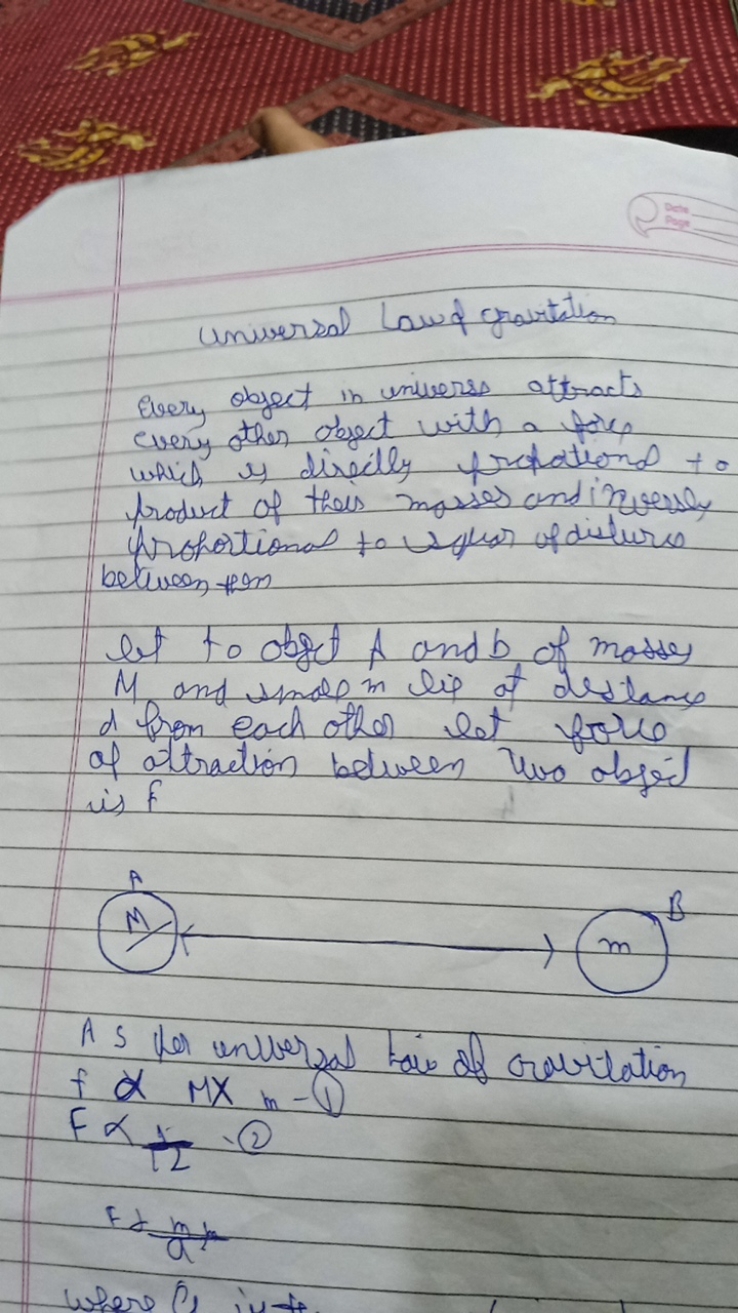 Date
Page
universal Law of gravitation
Every object in universs attracts
every other object with a force
which is directly propational to
product of their masses and inversly
proportional to squar of disturce
between them
let to object A and b of masses
M and small m lie at distance
d from each other let force
of attraction between two object
is f
A
B
M
m
As per universal law of gravitation
f ∝ M X m - ①
F ∝ - ②
F ∝
where G is